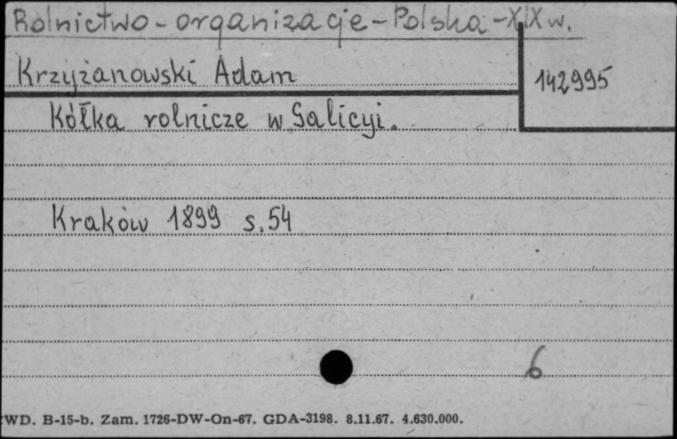 Rolnictwo - organizacje - Polska - XIX w.
Krzyżanowski Adam
142995
Kółka rolnicze w Galicyi.
Kraków 1899 s. 54
6
WD. B-15-b. Zam. 1726-DW-On-67. GDA-3198. 8.11.67. 4.630.000.